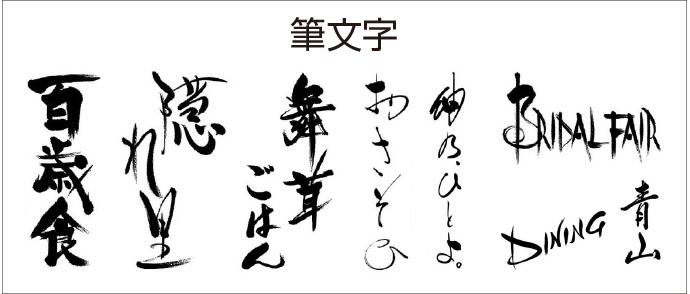 筆文字
百歳食
隠れ里
舞茸
ごはん
おさそひ
ひとよ。
BRIDAL FAIR
DINING
青山